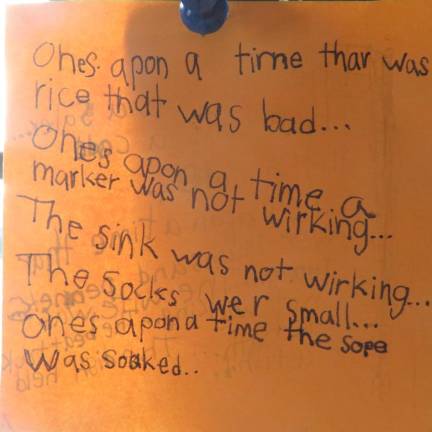 Ones apon a time thar was
rice that was bad...
Ones apon a time a
marker was not wirking...
The sink was not wirking...
The socks wer small...
ones apon a time the sope
was soaked..